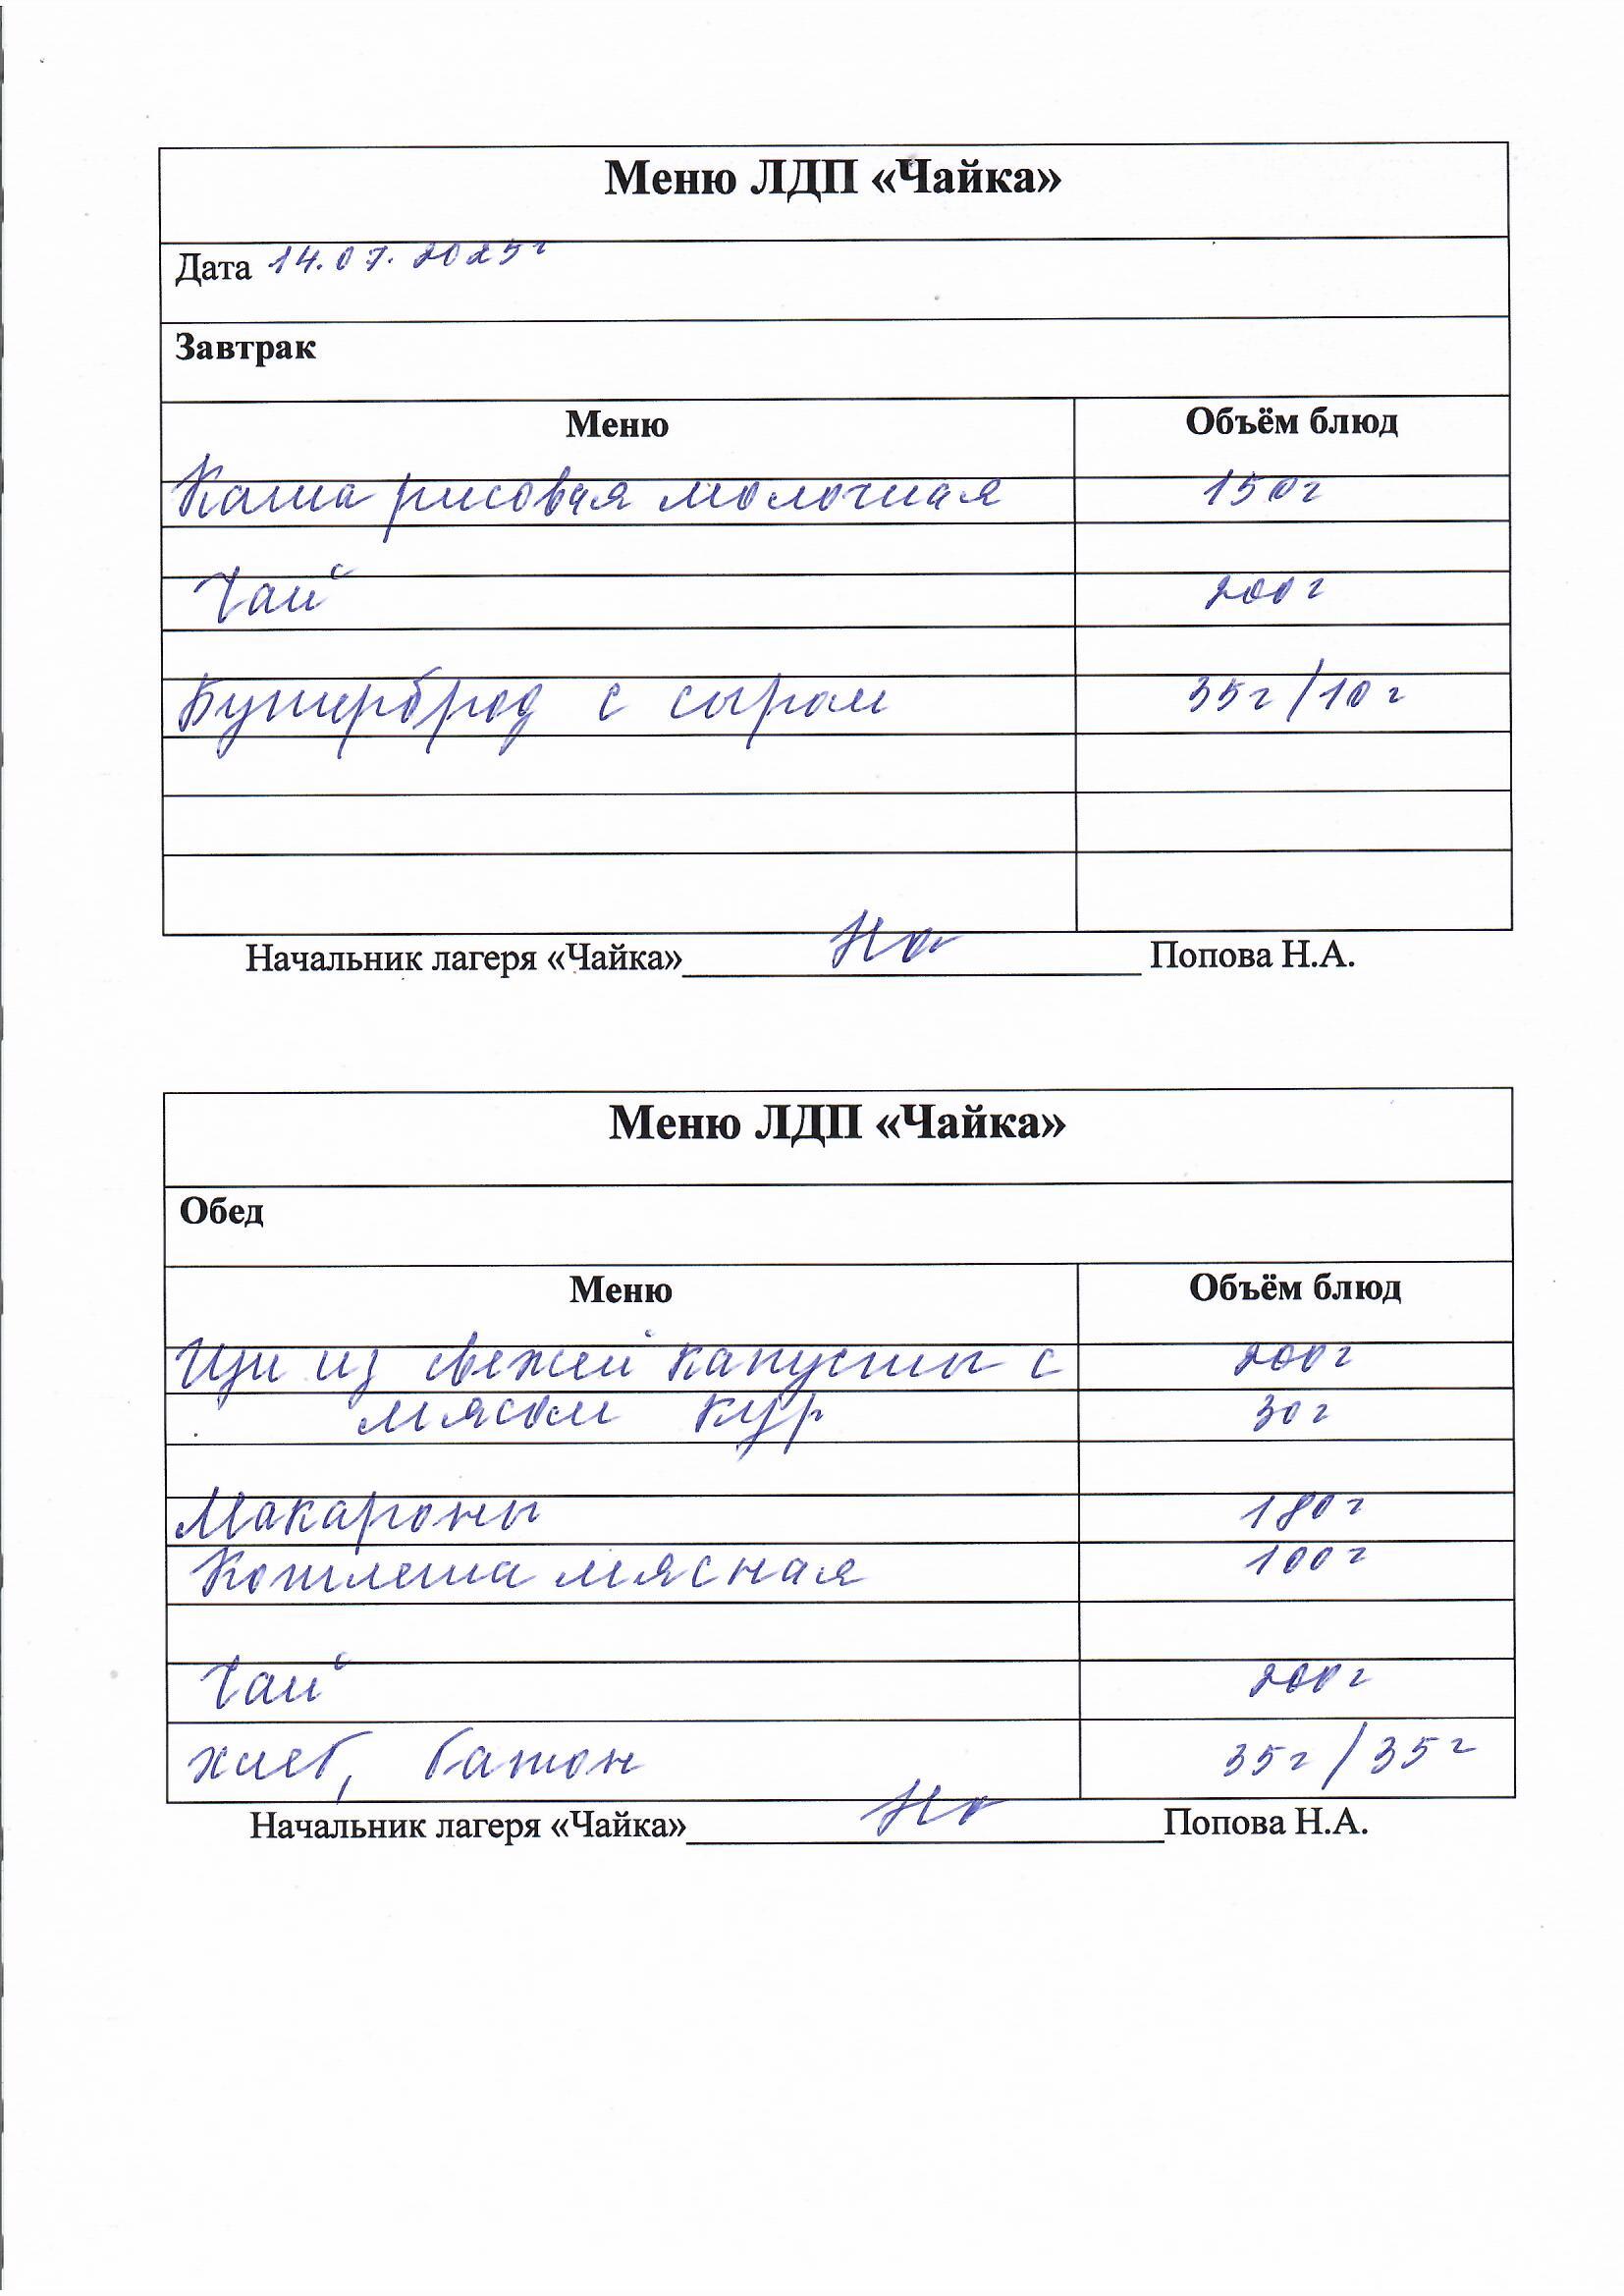 Меню ЛДП «Чайка»
Дата 14.07.2025г
Завтрак
Меню Объём блюд
Каша рисовая молочная 150г
Чай 200г
Бутерброд с сыром 35г/10г
Начальник лагеря «Чайка» Попова Н.А.
Меню ЛДП «Чайка»
Обед
Меню Объём блюд
Щи из свежей капусты с 200г
мясом кур 30г
Макароны 180г
Котлета мясная 100г
Чай 200г
хлеб, батон 35г/35г
Начальник лагеря «Чайка» Попова Н.А.